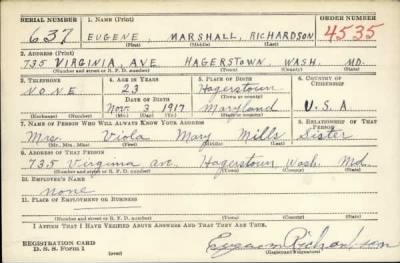 SERIAL NUMBER 1. NAME (Print) ORDER NUMBER
637 EUGENE, MARSHALL, RICHARDSON 4535
(First) (Middle) (Last)
2. ADDRESS (Print)
735 VIRGINIA, AVE HAGERSTOWN, WASH. MD.
(Number and street or R. F. D. number) (Town) (County) (State)
3. TELEPHONE 4. AGE IN YEARS 5. PLACE OF BIRTH 6. COUNTRY OF CITIZENSHIP
NONE 23 Hagerstown
DATE OF BIRTH (Town or county)
Nov. 3, 1917 Maryland U.S.A
(Exchange) (Number) (Mo.) (Day) (Yr.) (State or country)
7. NAME OF PERSON WHO WILL ALWAYS KNOW YOUR ADDRESS 8. RELATIONSHIP OF THAT PERSON
Mrs. Viola Mary Mills Sister
(Mr., Mrs., Miss) (First) (Middle) (Last)
9. ADDRESS OF THAT PERSON
735 Virginia ave. Hagerstown, Wash. Md.
(Number and street or R. F. D. number) (Town) (County) (State)
10. EMPLOYER'S NAME
none
11. PLACE OF EMPLOYMENT OR BUSINESS
(Number and street or R. F. D. number) (Town) (County) (State)
I AFFIRM THAT I HAVE VERIFIED ABOVE ANSWERS AND THAT THEY ARE TRUE.
REGISTRATION CARD
D. S. S. Form 1 Richardson
(Registrant's signature)